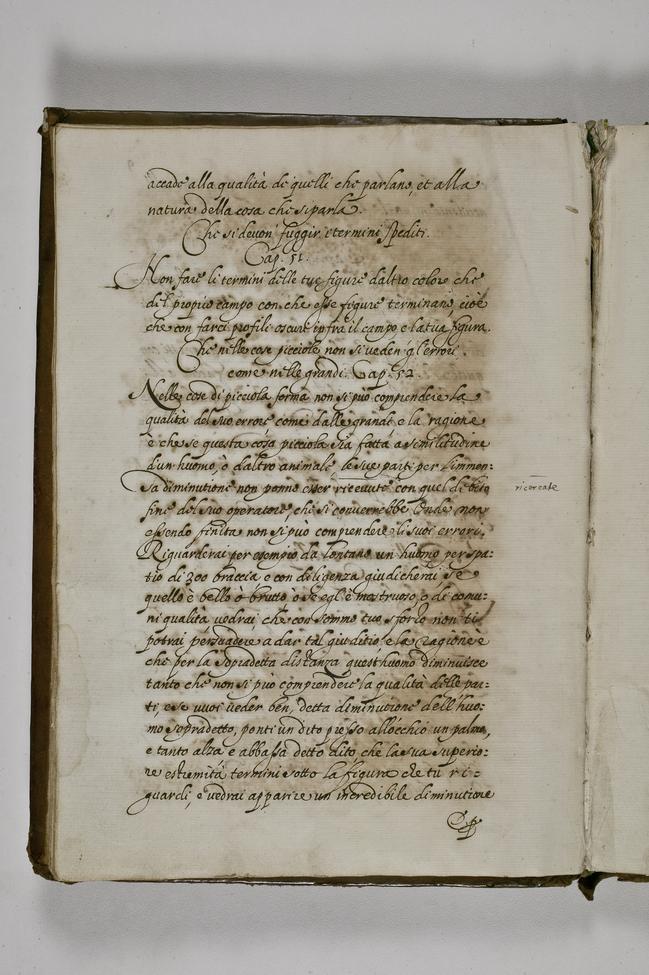 accade alla qualità de quelli che parlano, et alla
natura della cosa che si parla.
Che si devon' fuggir' i termini spediti.
Cap. 51.
Non fare li termini delle tue figure d'altro colore che
del proprio campo con che esse figure terminano, cioè
che con facci profili oscuri infra il campo e la tua figura.
Che nelle cose picciole non si veden' gl'errori
come nelle grandi. Cap. 52
Nelle cose di piccola forma non si può comprendere la
qualità del suo errore come dalle grandi e la ragione
è che se questa cosa picciola sia fatta a similitudine
d'un huomo, ò d'altro animale, le sue parti per l'immen:
sa diminutione non ponno esser ricevute con quel debito
ricercate
fine del suo operatore, che si converrebbe Onde non
essendo finita non si può comprendere li suoi errori.
Riguarderai per esempio da lontano un huomo per spa:
tio di 300 braccia e con diligenza giudicherai se
quello è bello ò brutto, ò s'egl'è mostruoso, o de comu:
ni qualità vedrai che con sommo tuo sforzo non ti
potrai persuadere a dar tal giuditio, e la ragione è
che per la sopradetta distanza quest'huomo diminuisce
tanto che non si può comprendere la qualità delle par:
ti, e se vuoi veder ben, detta diminutione dell'huo:
mo sopradetto, ponti un dito presso all'occhio un palmo,
e tanto alza e abbassa detto dito che la sua superio:
re estremità termini sotto la figura che tu ri:
guardi, e vedrai apparire un incredibile diminutione